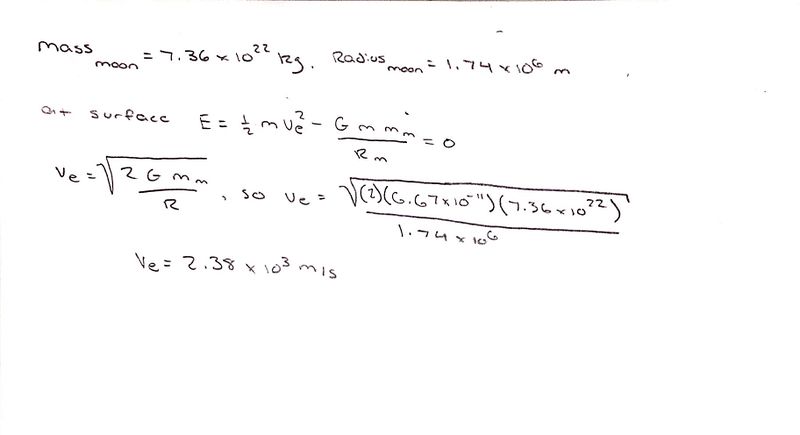 mass moon = 7.36 × 10²² kg. Radius moon = 1.74 × 10⁶ m
at surface E = ½ m vₑ² − G m mₘ / Rₘ = 0
vₑ = √(2 G mₘ / R), so vₑ = √((2)(6.67×10⁻¹¹)(7.36×10²²) / 1.74 × 10⁶)
Vₑ = 2.38 × 10³ m/s